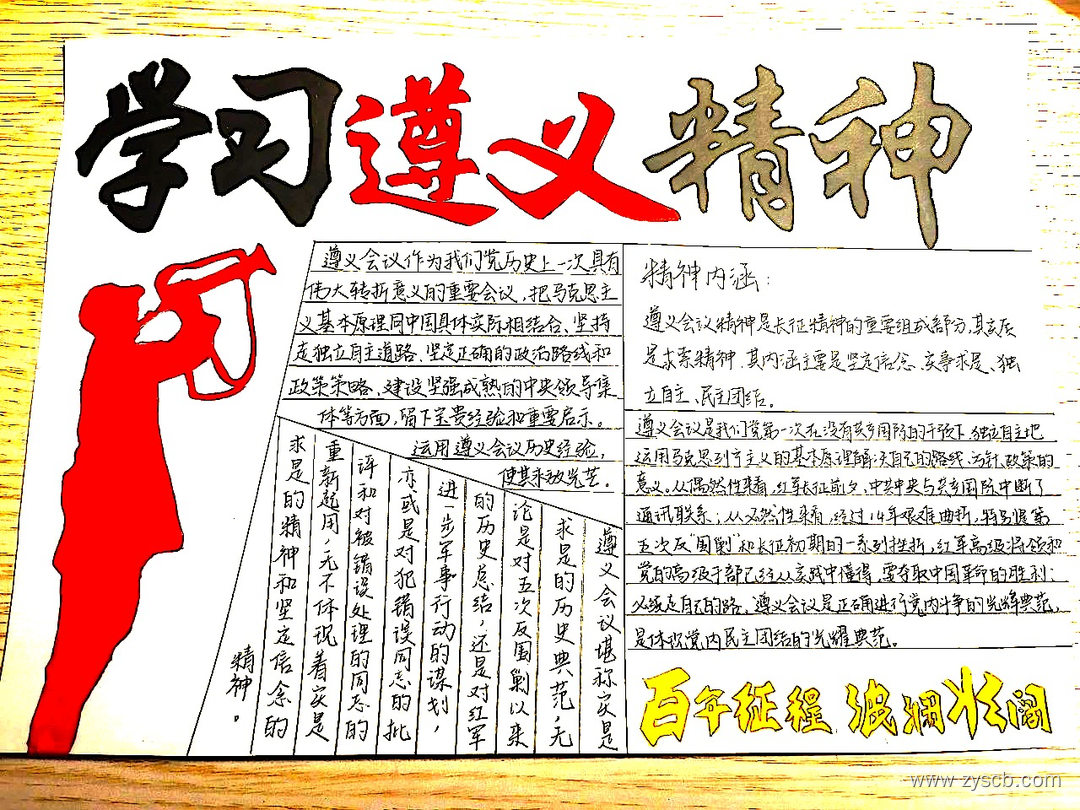 学习遵义精神
遵义会议作为我们党历史上一次具有
伟大转折意义的重要会议,把马克思主
义基本原理同中国具体实际相结合、坚持
走独立自主道路、坚定正确的政治路线和
政策策略、建设坚强成熟的中央领导集
体等方面,留下宝贵经验和重要启示。
运用遵义会议历史经验,
使其永放光芒。
遵义会议堪称实事
求是的历史典范,无
论是对五次反围剿以来
的历史总结,还是对红军
进一步军事行动的谋划,
亦或是对犯错误同志的批
评和对被错误处理的同志的
重新起用,无不体现着实事
求是的精神和坚定信念的
精神。
精神内涵:
遵义会议精神是长征精神的重要组成部分,其实质
是求索精神,其内涵主要是坚定信念、实事求是、独
立自主、民主团结。
遵义会议是我们党第一次在没有共产国际的干预下,独立自主地
运用马克思列宁主义的基本原理解决自己的路线、方针、政策的
意义。从偶然性来看,红军长征前夕,中共中央与共产国际中断了
通讯联系;从必然性来看,经过14年艰难曲折,特别是第
五次反“围剿”和长征初期的一系列挫折,红军高级将领和
党的高级干部已经从实践中懂得,要夺取中国革命的胜利;
必须走自己的路。遵义会议是正确进行党内斗争的光辉典范,
是体现党内民主团结的光耀典范。
百年征程 波澜壮阔
www.zyscb.com